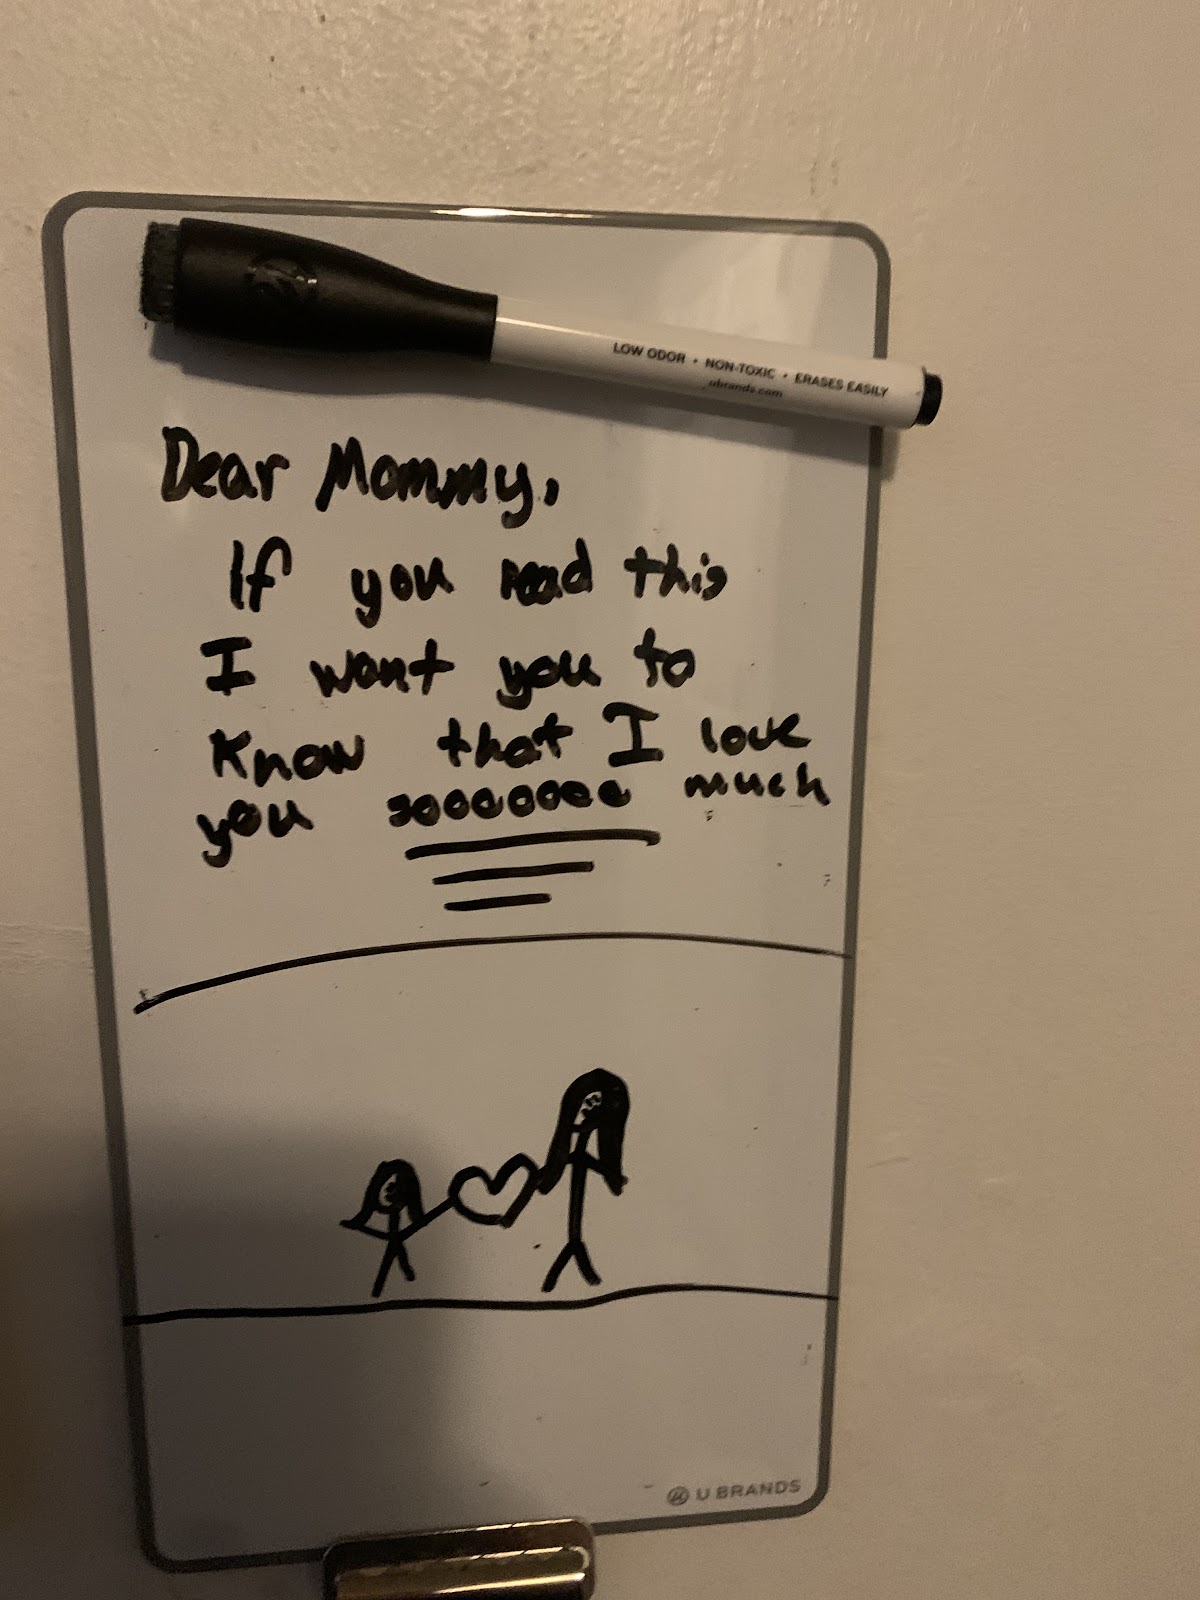 LOW ODOR • NON-TOXIC • ERASES EASILY
ubrands.com
Dear Mommy,
If you read this
I want you to
Know that I love
you soooooooo much
U BRANDS